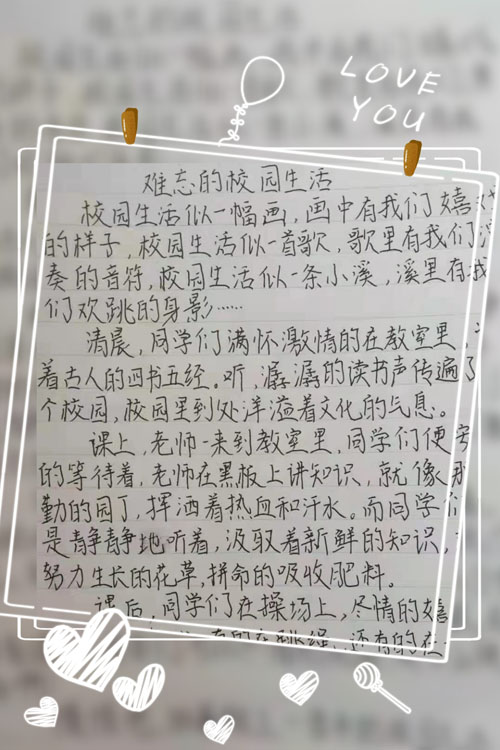 LOVE
YOU
难忘的校园生活
校园生活似一幅画,画中有我们嬉
的样子,校园生活似一首歌,歌里有我们
奏的音符,校园生活似一条小溪,溪里有我
们欢跳的身影……
清晨,同学们满怀激情的在教室里,
着古人的四书五经。听,潺潺的读书声传遍了
个校园,校园里到处洋溢着文化的气息。
课上,老师一来到教室里,同学们便安
的等待着,老师在黑板上讲知识,就像
勤的园丁,挥洒着热血和汗水。而同学们
是静静地听着,汲取着新鲜的知识,
努力生长的花草,拼命的吸收肥料。
课后,同学们在操场上,尽情的嬉
有的在跳绳,还有的在